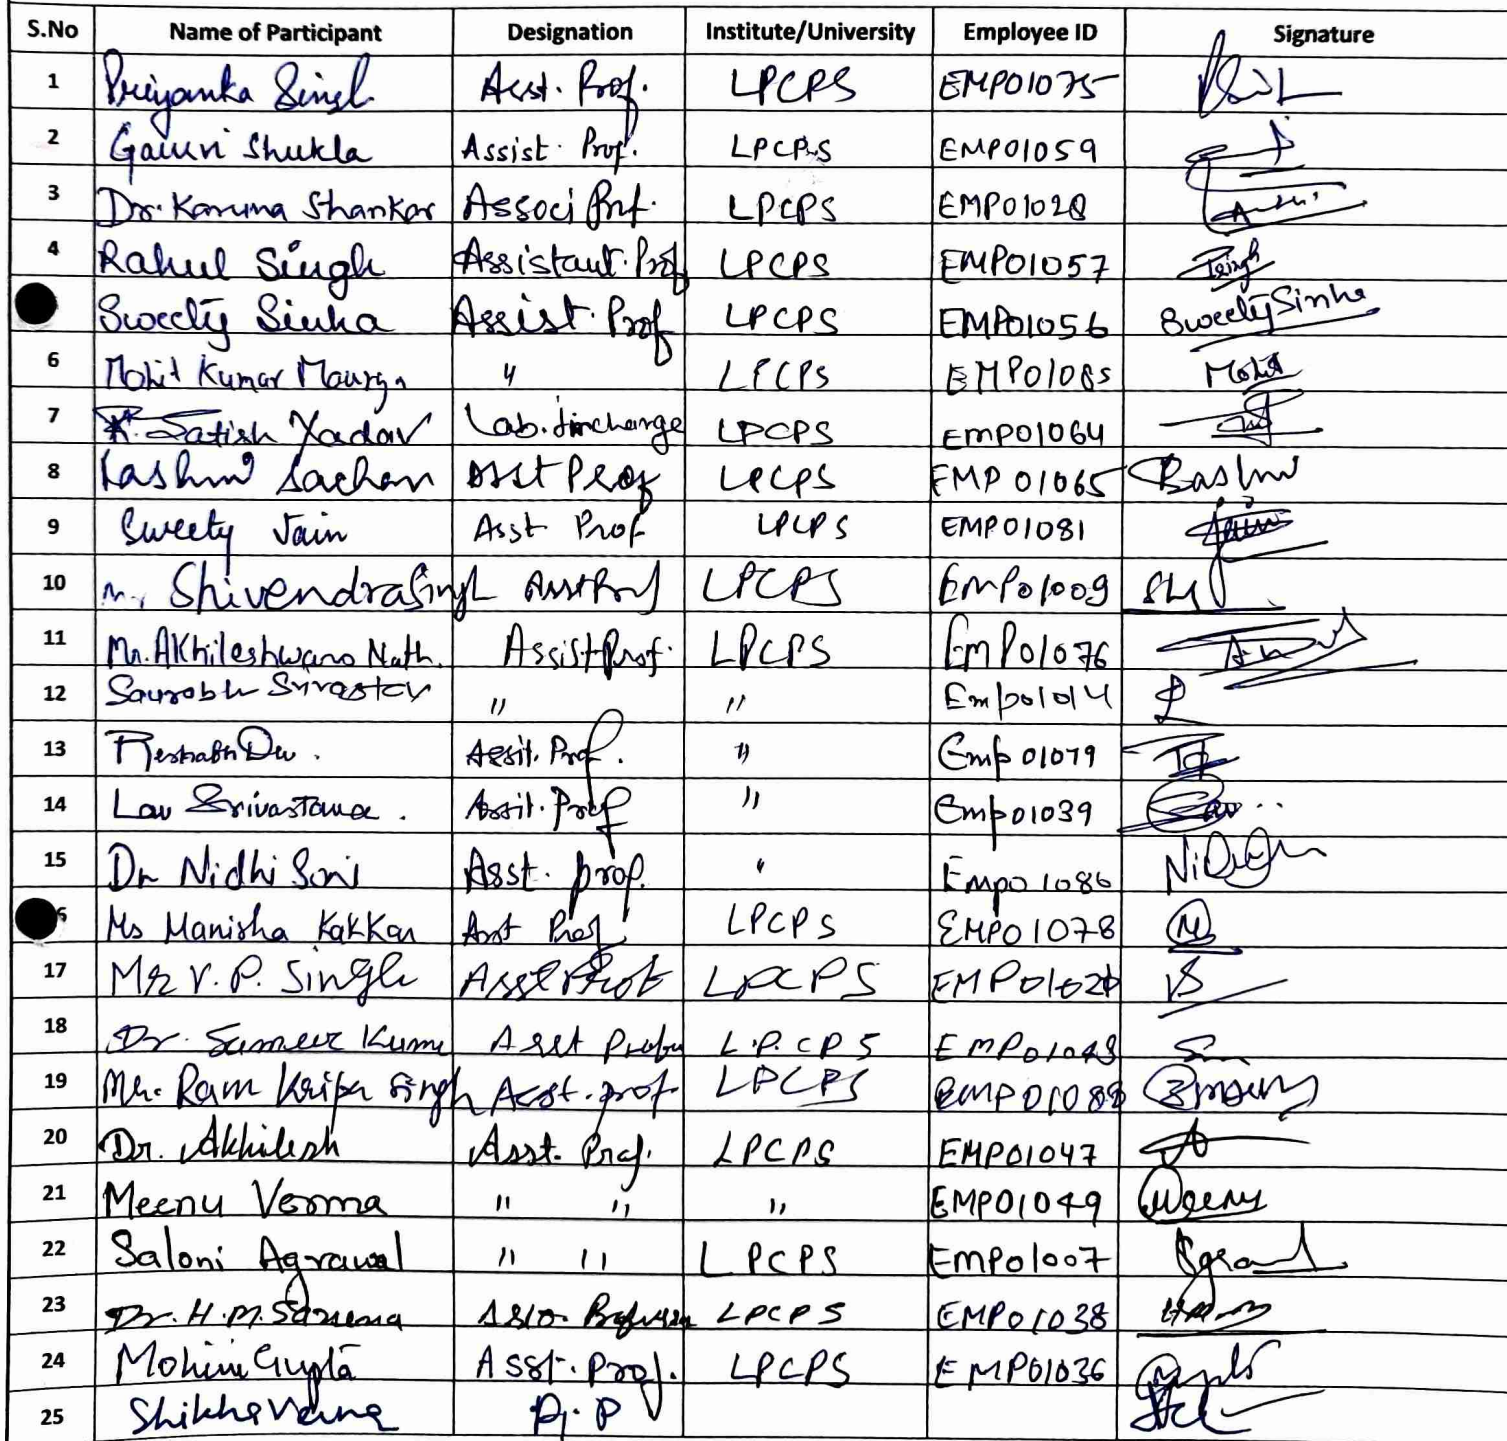 S.No Name of Participant Designation Institute/University Employee ID Signature
1 Priyanka Singh Asst. Prof. LPCPS EMP01075
2 Gauri Shukla Assist. Prof. LPCPS EMP01059
3 Dr. Karuna Shankar Associ Prof. LPCPS EMP01028
4 Rahul Singh Assistant. Prof LPCPS EMP01057 Rsingh
Sweety Sinha Assist. Prof LPCPS EMP01056 Sweety Sinha
6 Mohit Kumar Maurya " LPCPS EMP01085 Mohit
7 Satish Yadav Lab. Incharge LPCPS EMP01064
8 Rashmi Sachan Asst Prof LPCPS EMP 01065 Rashmi
9 Sweety Jain Asst Prof LPCPS EMP01081
10 Mr Shivendra Singh Asst Prof LPCPS EMP01009
11 Mr. Akhileshwara Nath. Assist Prof. LPCPS EmP01076
12 Saurabh Srivastav " " Emp01014
13 Dev. Assit. Prof. " Emp 01079
14 Lav Srivastava. Assit. Prof " Emp01039
15 Dr Nidhi Soni Asst. prof. " Emp01086 Nidhi
Ms Manisha Kakkar Asst Prof LPCPS EMP01078 M
17 Mr V. P. Singh Asst Prof LPCPS VS
18 Dr. Sameer Kumar Asst L.P.CPS
19 Mr. Ram Kripa Singh Asst. prof. LPCPS
20 Dr. Akhilesh Asst. Prof. LPCPS EMP01047
21 Meenu Verma " " " EMP01049 Meenu
22 Saloni Agrawal " " LPCPS EMP01007
23 Dr. H.M. Saxena Asso. Professor LPCPS EMP01038
24 Mohini Gupta Asst. Prof. LPCPS EMP01036 Gupta
25 Shikha Verma A. P